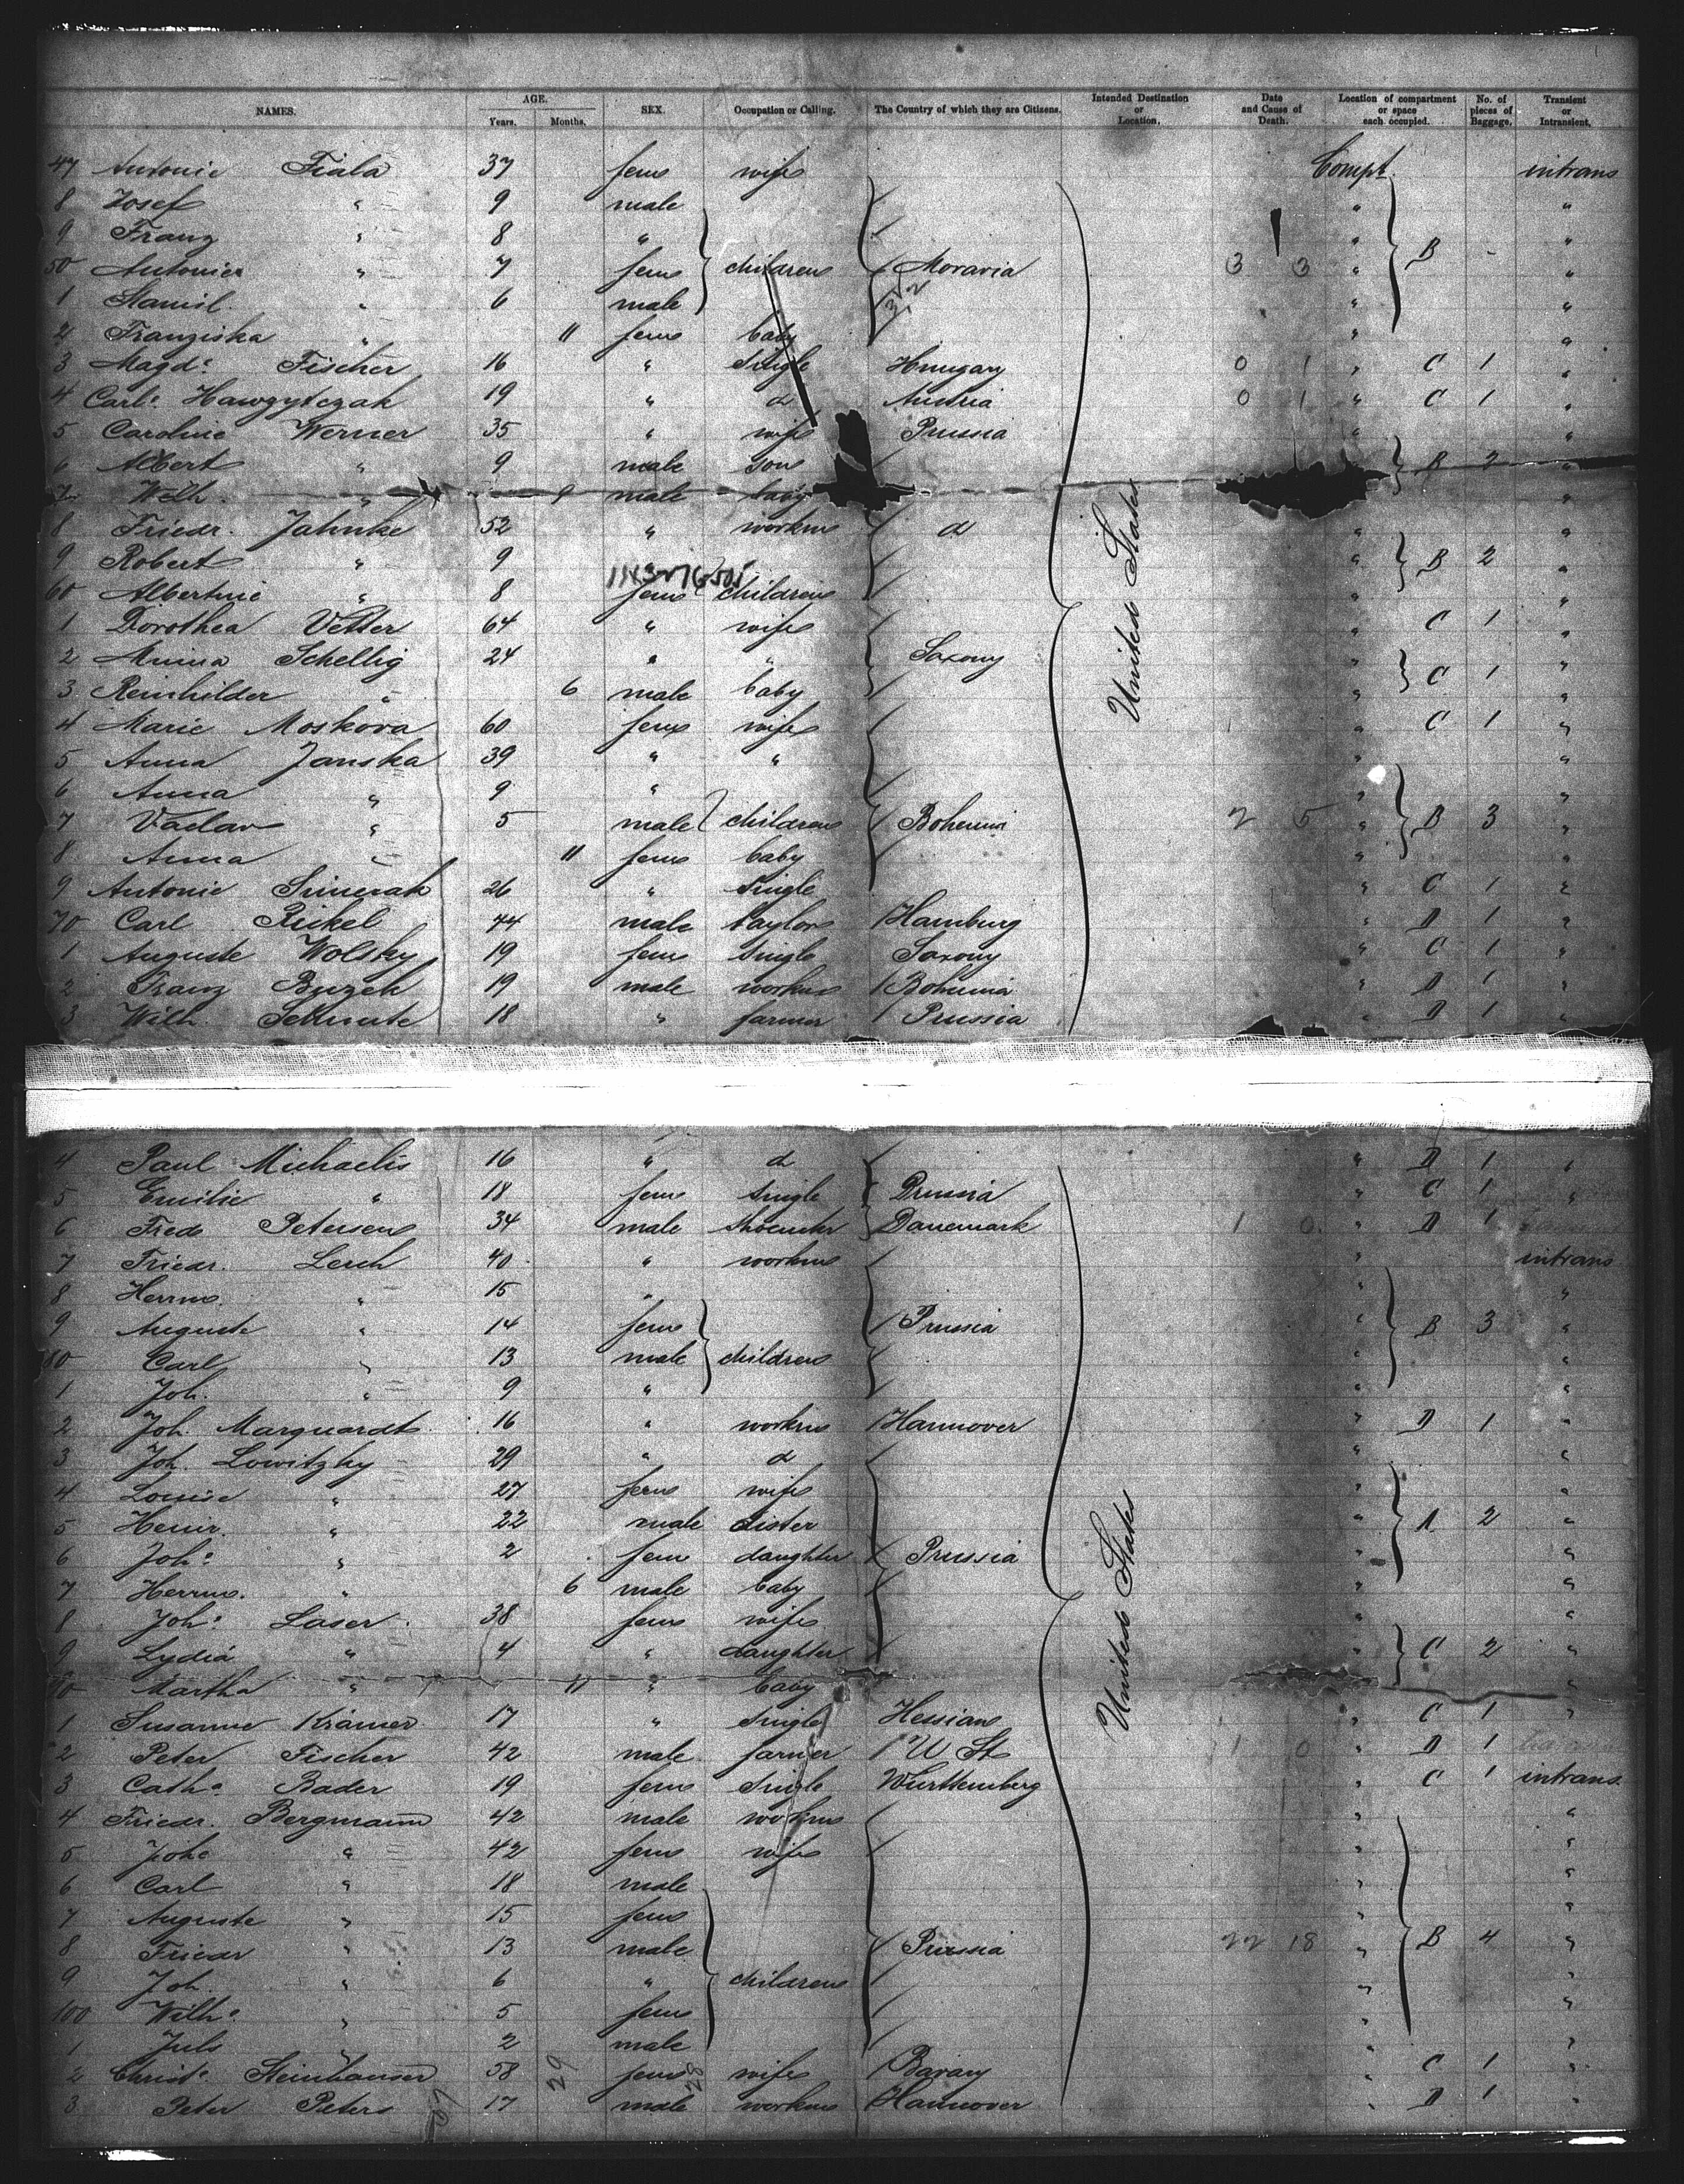 NAMES. AGE. Years. Months. SEX. Occupation or Calling. The Country of which they are Citizens. Intended Destination or Location. Date and Cause of Death. Location of compartment or space each occupied. No. of pieces of Baggage. Transient or Intransient.
47 Antonie Fiala 37 fem wife Compt. intrans
8 Josef " 9 male " "
9 Franz " 8 " " "
50 Antonie " 7 fem children Moravia 3 3 " B - "
1 Stanisl. " 6 male " "
2 Franziska " 11 fem baby " "
3 Magde Fischer 16 " Single Hungary 0 1 " C 1 "
4 Carle Hawzytczak 19 " d Austria 0 1 " C 1 "
5 Caroline Werner 35 " wife Prussia " "
6 Albert " 9 male son B 2 "
7 Wilh. " 9 male baby "
8 Friedr. Jahnke 52 " workm d " "
9 Robert " 9 " " B 2 "
60 Albertine " 8 fem children " "
1 Dorothea Vetter 64 " wife " C 1 "
2 Minna Schellig 24 " " Saxony " "
3 Reinhilder " 6 male baby " C 1 "
4 Marie Moskova 60 fem wife " C 1 "
5 Anna Janska 39 " " " "
6 Anna " 9 " " "
7 Vaclav " 5 male children Bohemia 2 5 " B 3 "
8 Anna " 11 fem baby " "
9 Antonie Simerak 26 " Single " C 1 "
70 Carl Rickel 44 male taylor Hamburg " D 1 "
1 Auguste Wolsky 19 fem Single Saxony " C 1 "
2 Franz Buzek 19 male workm Bohemia " D 1 "
3 Wilh. Schmute 18 " farmer Prussia " D 1 "
United States
4 Paul Michaelis 16 " d " D 1 "
5 Emilie " 18 fem Single Prussia " C 1 "
6 Fred Petersen 34 male Shoemker Danemark 1 0 " D 1
7 Friedr. Lerch 40 " workm " intrans
8 Herrm. " 15 " " "
9 Auguste " 14 fem Prussia " B 3 "
80 Carl " 13 male children " "
1 Joh. " 9 " " "
2 Joh. Marquardt 16 " workm Hannover " D 1 "
3 Joh. Lowitzky 29 " d " "
4 Louise " 27 fem wife " "
5 Heinr. " 22 male Sister " A 2 "
6 Johe " 2 fem daughter Prussia " "
7 Herrm. " 6 male baby " "
8 Johe Laser 38 fem wife " "
9 Lydia " 4 " daughter " C 2 "
90 Martha " 11 " baby "
1 Susanne Krämer 17 " Single Hessian " C 1 "
2 Peter Fischer 42 male farmer U St 1 0 " D 1
3 Cathe Bader 19 fem Single Württemberg " C 1 intrans.
4 Friedr. Bergmann 42 male workm " "
5 Johe " 42 fem wife " "
6 Carl " 18 male " "
7 Auguste " 15 fem " "
8 Friedr " 13 male Prussia 22 18 " B 4 "
9 Joh. " 6 " children " "
100 Wilhe " 5 fem " "
1 Juls " 2 male " "
2 Christe Steinhauser 58 fem wife Bavary " C 1 "
3 Peter Peters 17 male workm Hannover " D 1 "
United States
29
28